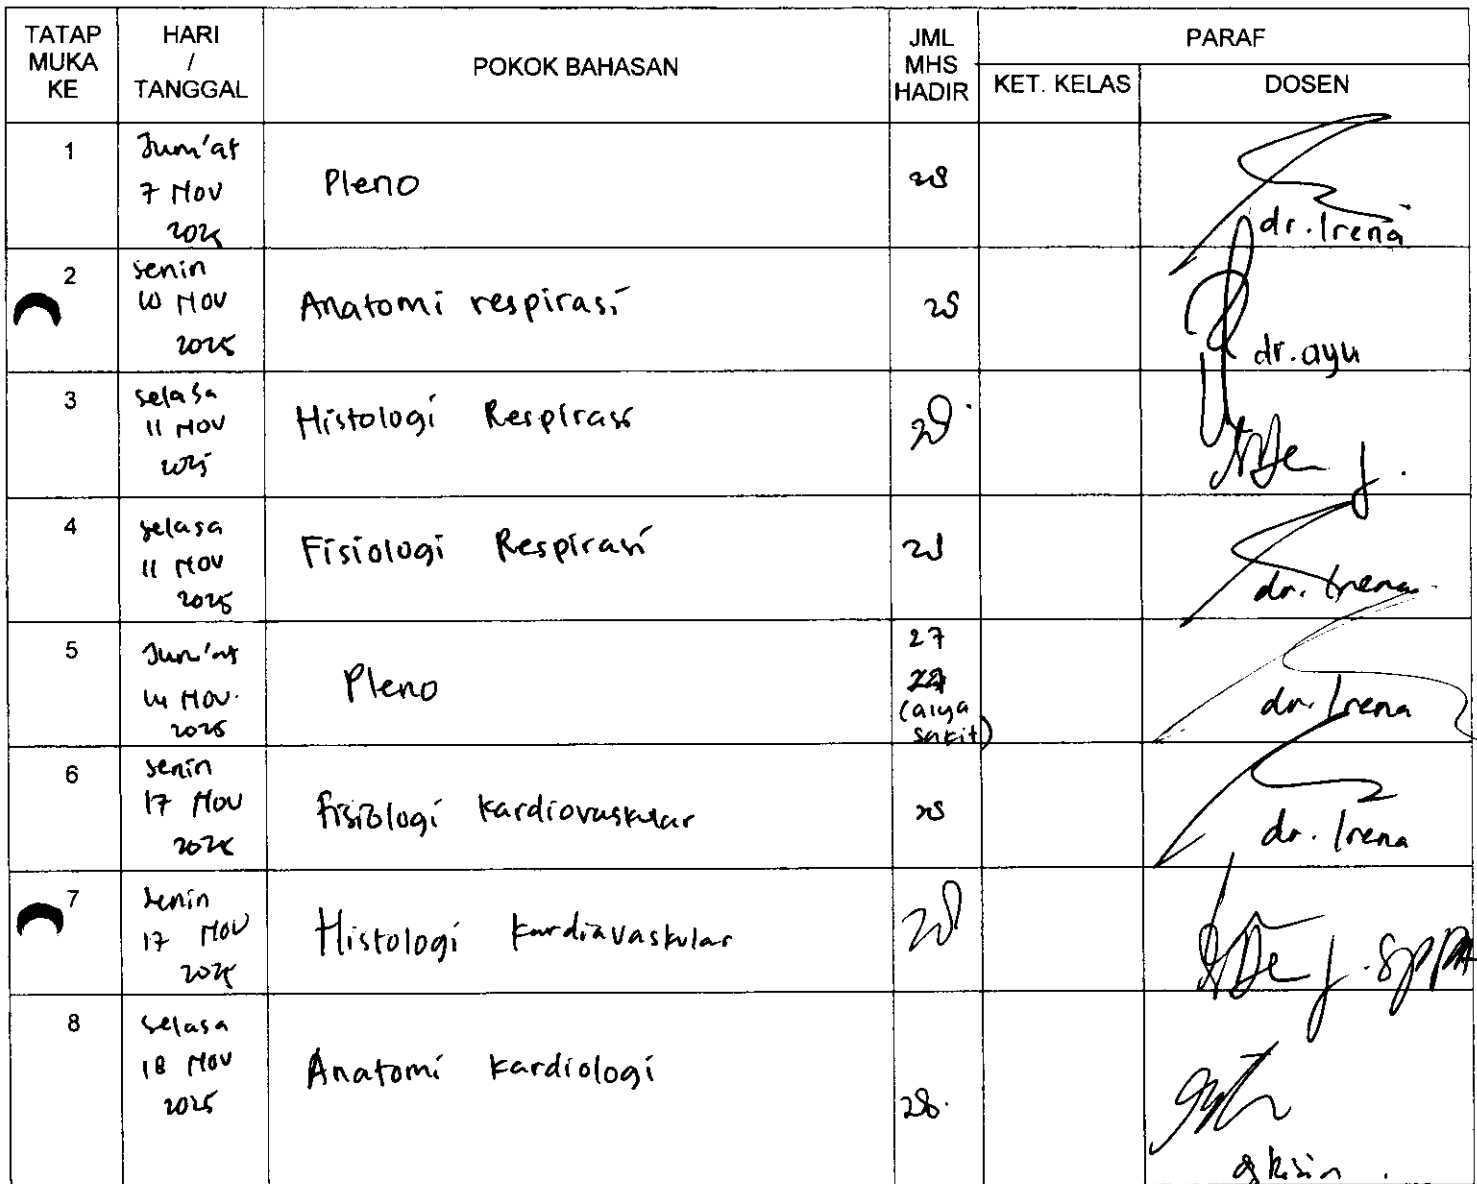 TATAP MUKA KE | HARI / TANGGAL | POKOK BAHASAN | JML MHS HADIR | PARAF
KET. KELAS | DOSEN
1 | Jum'at 7 Nov 2025 | Pleno | 28 | dr. Irena
2 | senin 10 Nov 2025 | Anatomi respirasi | 28 | dr. ayu
3 | selasa 11 Nov 2025 | Histologi Respirasi | 28
4 | selasa 11 Nov 2025 | Fisiologi Respirasi | 28 | dr. Irena
5 | Jum'at 14 Nov. 2025 | Pleno | 27 (alya sakit) | dr. Irena
6 | senin 17 Nov 2025 | fisiologi kardiovaskular | 28 | dr. Irena
7 | senin 17 Nov 2025 | Histologi kardiavaskular | 28 | SpPA
8 | selasa 18 Nov 2025 | Anatomi kardiologi | 28.